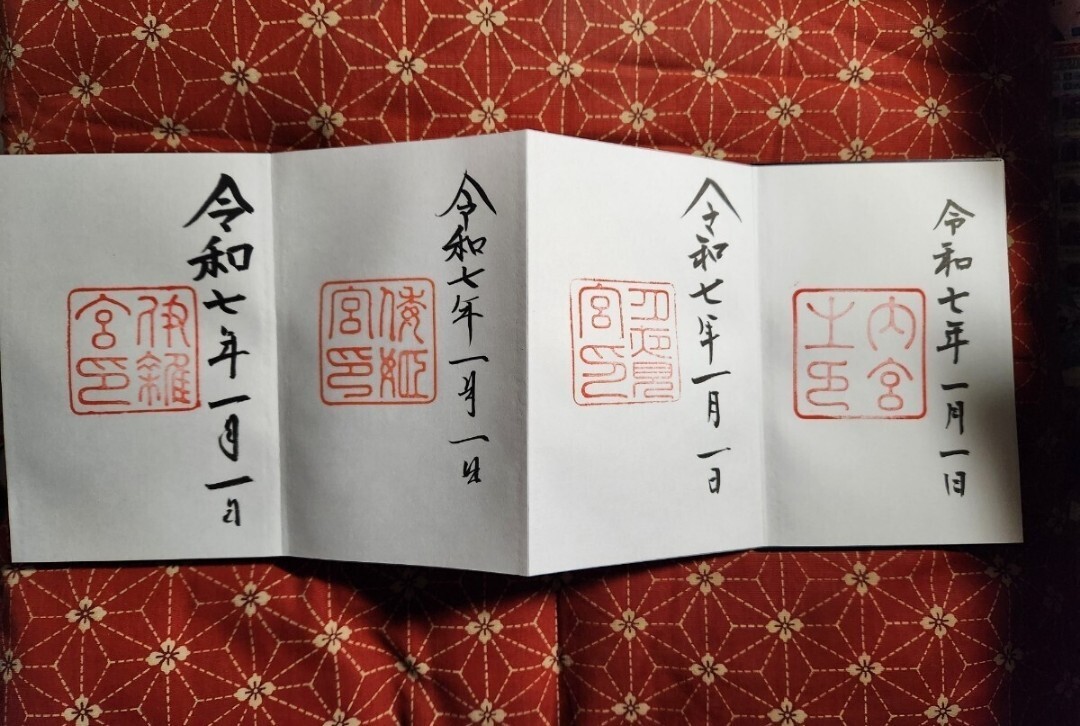 令和七年一月一日
内宮
之印
令和七年一月一日
宮印
令和七年一月一日
倭姫
宮印
令和七年一月一日
伊雜
宮印